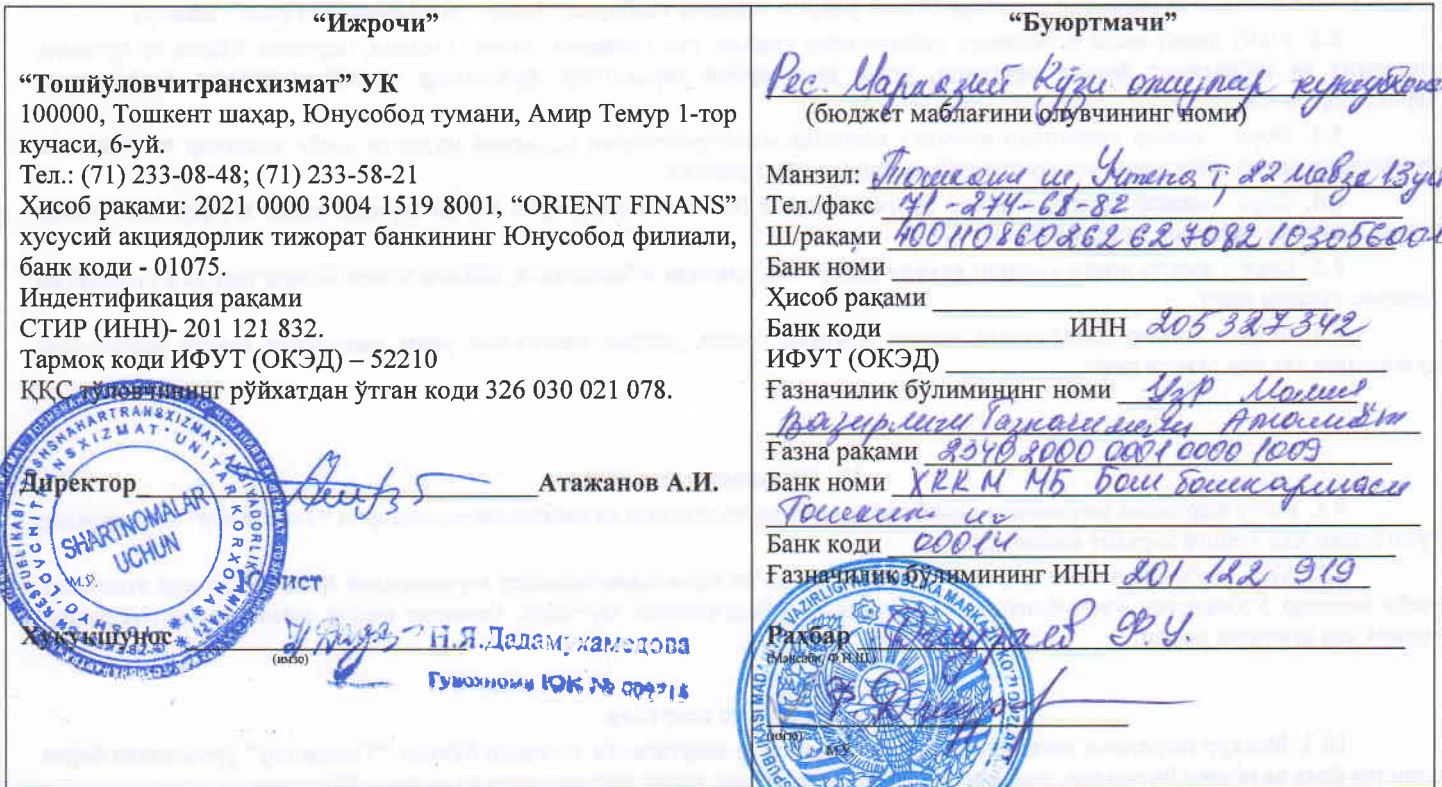 “Ижрочи”
“Тошйўловчитрансхизмат” УК
100000, Тошкент шаҳар, Юнусобод тумани, Амир Темур 1-тор
кучаси, 6-уй.
Тел.: (71) 233-08-48; (71) 233-58-21
Ҳисоб рақами: 2021 0000 3004 1519 8001, “ORIENT FINANS”
хусусий акциядорлик тижорат банкининг Юнусобод филиали,
банк коди - 01075.
Индентификация рақами
СТИР (ИНН)- 201 121 832.
Тармоқ коди ИФУТ (ОКЭД) – 52210
ҚҚС тўловчининг рўйхатдан ўтган коди 326 030 021 078.
Директор Атажанов А.И.
SHARTNOMALAR
UCHUN
М.Ў.
Юрист
Хуқуқшунос Н.Я.Дадамухамедова
(имзо)
Гувохнома ЮК № 009714
“Буюртмачи”
Рес. Марказий Кўзи ожизлар
(бюджет маблағини олувчининг номи)
Манзил: Тошкент ш, Учтепа т, 22 мавзе 13 уй
Тел./факс 71-274-68-82
Ш/рақами 400110860262627082103056001
Банк номи
Ҳисоб рақами
Банк коди ИНН 205327342
ИФУТ (ОКЭД)
Ғазначилик бўлимининг номи УзР Молия
Вазирлиги Ғазначилиги
Ғазна рақами 23402000 0001 0000 1009
Банк номи ХККМ МБ Бош бошкармаси
Тошкент ш
Банк коди 00014
Ғазначилик бўлимининг ИНН 201 122 919
Рахбар Ф.У.
(Мансаби, Ф.И.Ш.)
(имзо)
М.Ў.